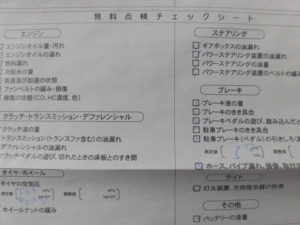 無料点検チェックシート
エンジン
エンジンオイル量・汚れ
エンジンオイルの漏れ
燃料漏れ
冷却水の量
低速及び加速の状態
ファンベルトの緩み・損傷
排気の状態(CO、HC濃度、色)
クラッチ・トランスミッション・デファレンシャル
クラッチ液の量
トランスミッション(トランスファ含む)の油漏れ
デファレンシャルの油漏れ
クラッチペダルの遊び、切れたときの床板とのすき間
タイヤ・ホイール
タイヤの空気圧
ホイールナットの緩み
ステアリング
ギアボックスの油漏れ
パワーステアリング装置の油漏れ
パワーステアリングの油量
パワーステアリング装置のベルトの緩み
ブレーキ
ブレーキ液の量
ブレーキのきき具合
ブレーキペダルの遊び、踏み込んだと
駐車ブレーキのきき具合
駐車ブレーキ(ペダル)の引きしろ
ホース、パイプ漏れ、損傷、取付
ライト
灯火装置、方向指示器の作用
その他
バッテリーの液量